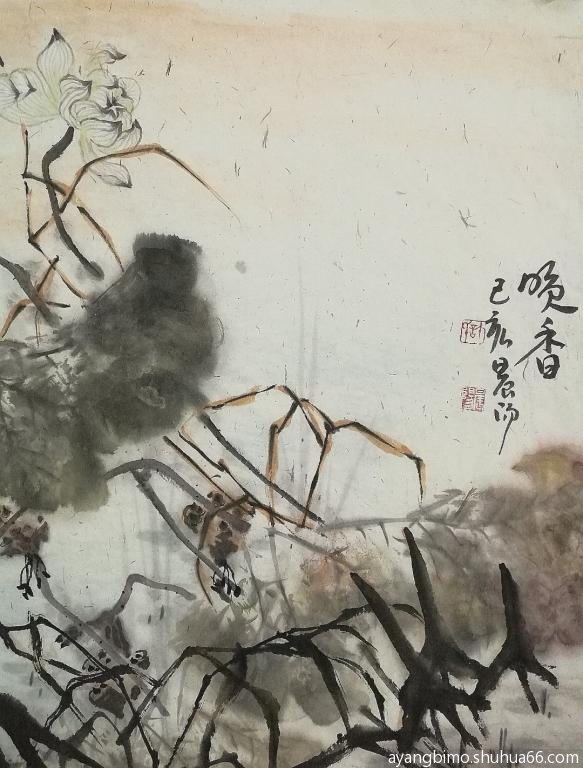 晚香
己亥晨阳
ayangbimo.shuhua66.com